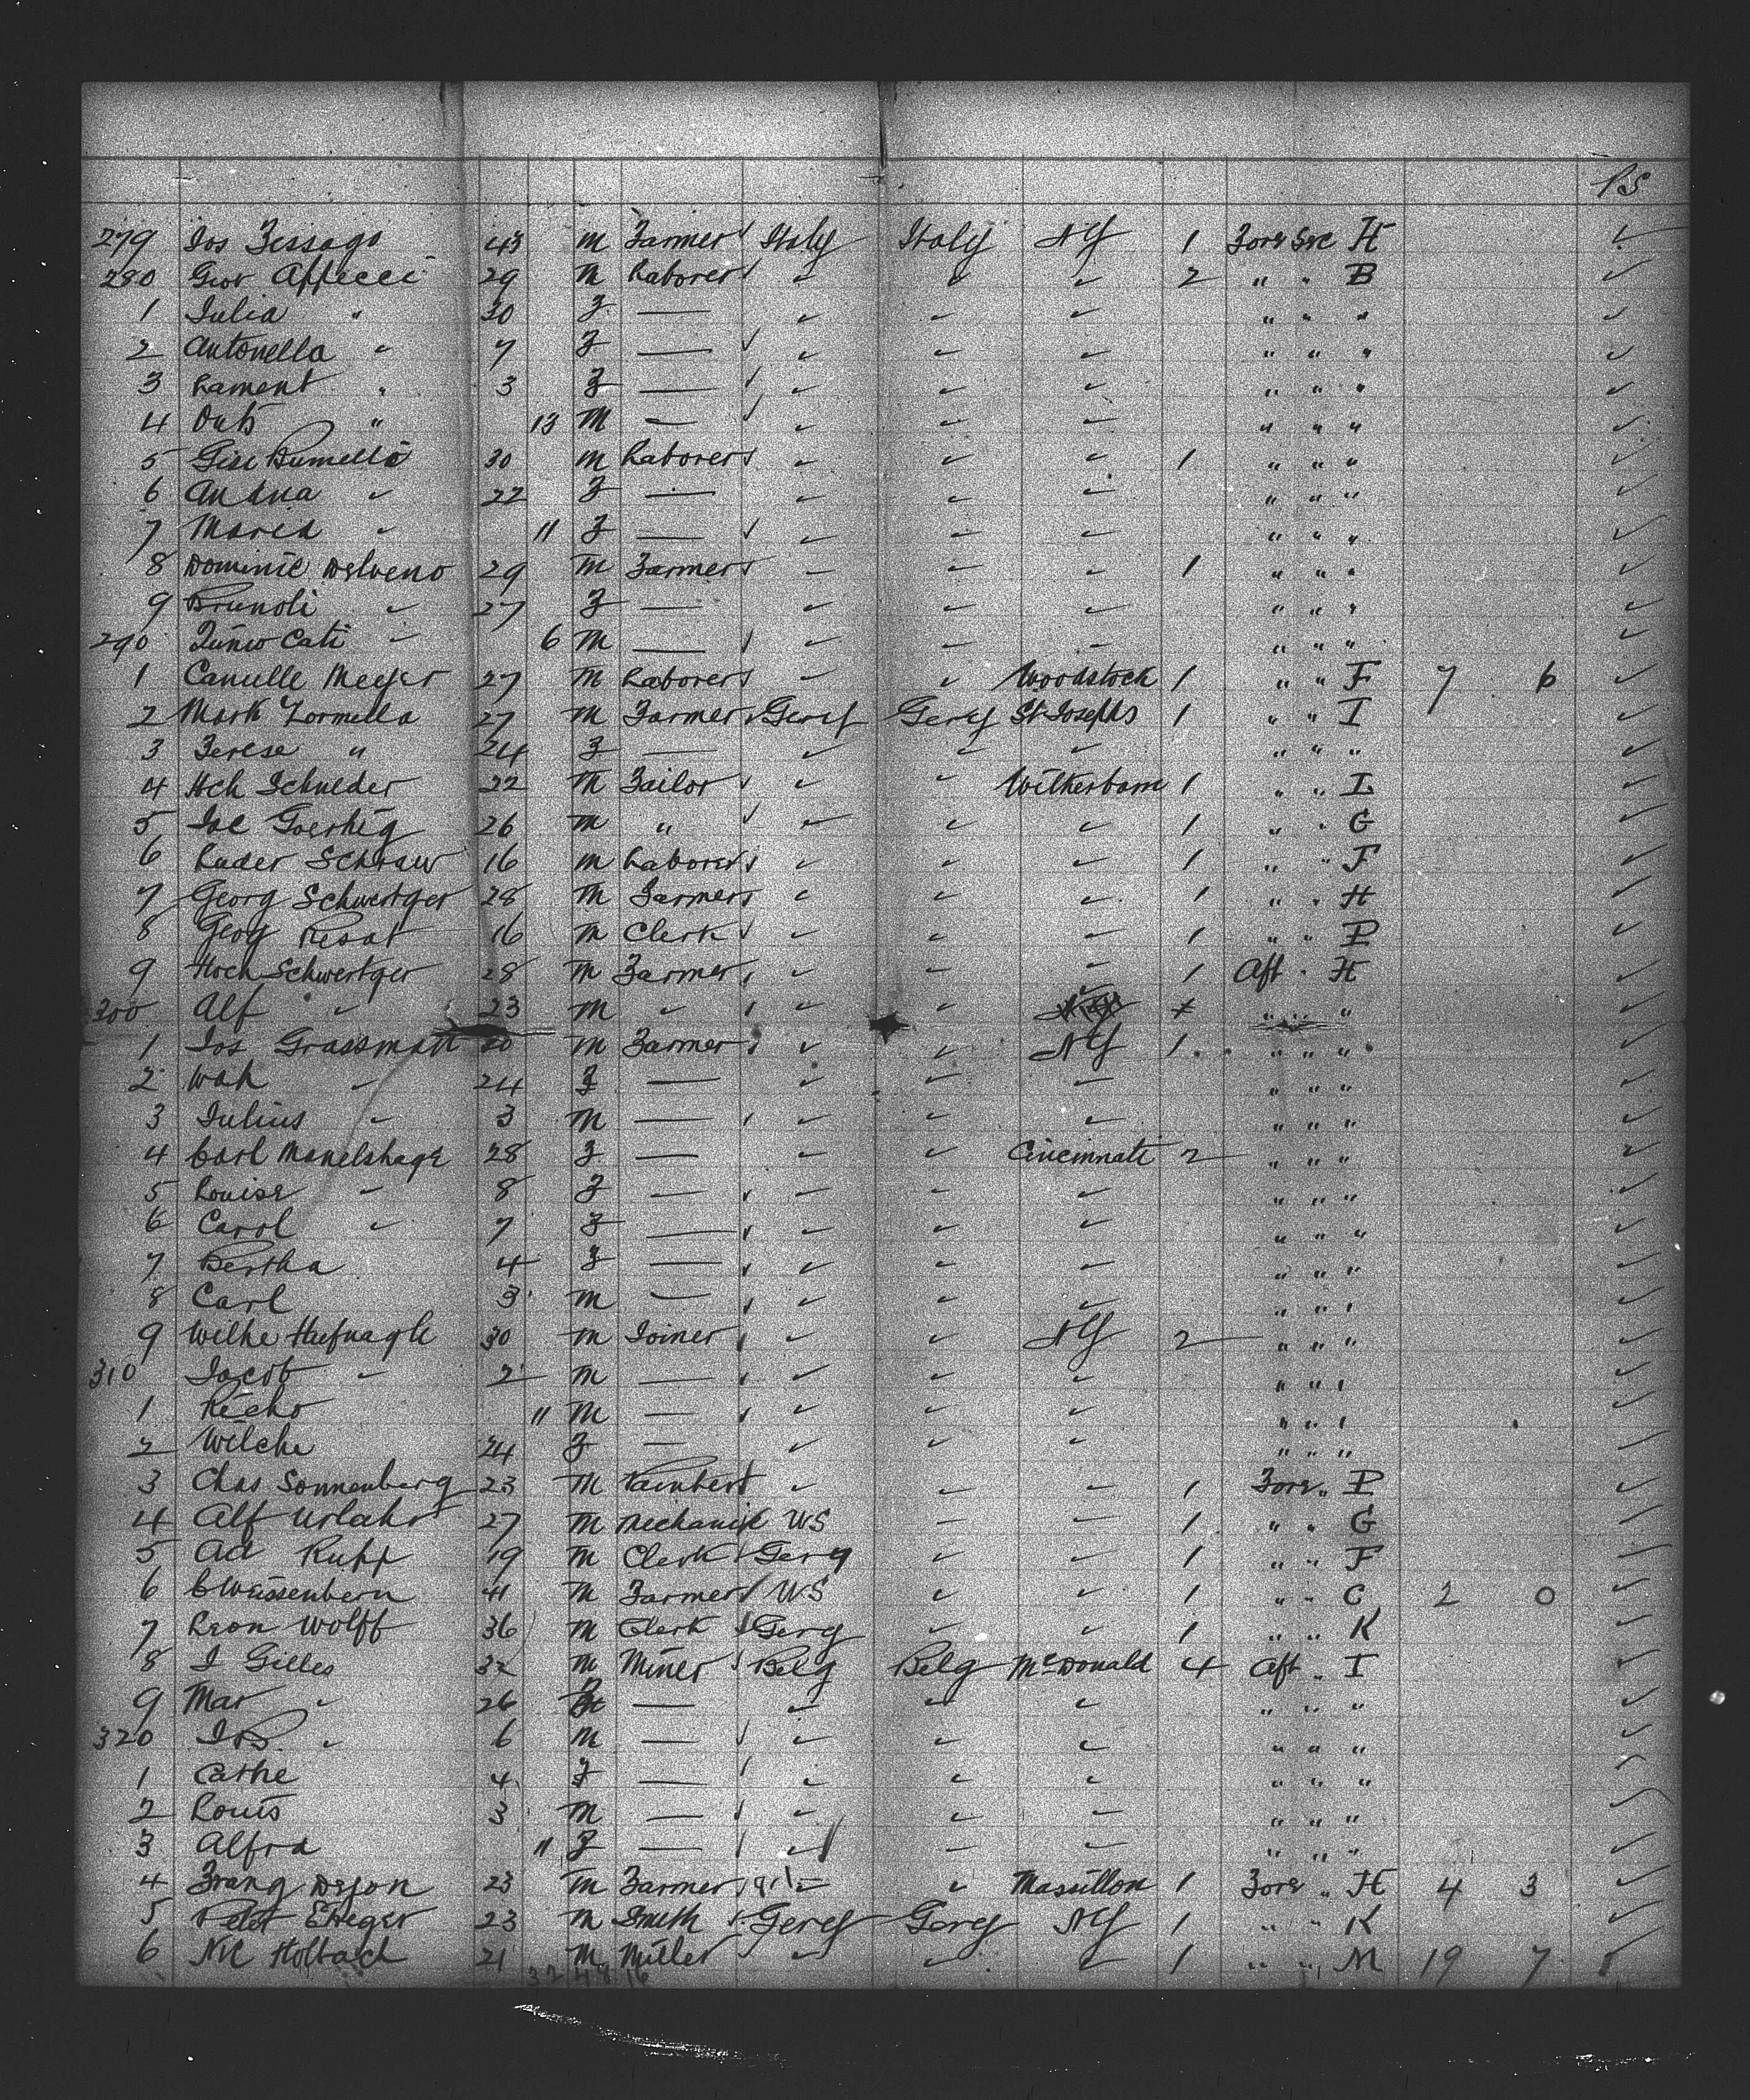 PS
279 Jos Fessago 43 M Farmer Italy Italy NY 1 Fore Sve H ✓
280 Giov Appecci 29 M Laborer " " " 2 " " B ✓
1 Julia " 30 F — " " " " " " ✓
2 Antonella " 7 F — " " " " " " ✓
3 Lament " 3 F — " " " " " " ✓
4 " 13 M — " " " " " " ✓
5 Gise Bumella 30 M Laborer " " " 1 " " " ✓
6 " 22 F — " " " " " " ✓
7 Maria " 11 F — " " " " " " ✓
8 Dominic Delveno 29 M Farmer " " " 1 " " " ✓
9 Brunoli " 27 F — " " " " " " ✓
290 Cati " 6 M — " " " " " " ✓
1 Camille Meyer 27 M Laborer " " Woodstock 1 " " F 7 6 ✓
2 Mark Formella 27 M Farmer Gery Gery St Josephs 1 " " I ✓
3 Terese " 24 F — " " " " " " ✓
4 Hch Schneder 22 M Tailor " " 1 " " I ✓
5 Joe Goerhig 26 M " " " " 1 " " G ✓
6 Luder Schraw 16 M Laborer " " " 1 " " F ✓
7 Georg Schwertger 28 M Farmer " " " 1 " " H ✓
8 Geog Resat 16 M Clerk " " " 1 " " P ✓
9 Hoch Schwertger 28 M Farmer " " " 1 Aft " H ✓
300 Alf " 23 M " " " " " " ✓
1 Jos Grassmatt 30 M Farmer " " NY 1 " " " ✓
2 Wah " 24 F — " " " " " " ✓
3 Julius " 3 M — " " " " " " ✓
4 Carl Manelshage 28 F — " " Cincinnati 2 " " " ✓
5 Louise " 8 F — " " " " " " ✓
6 Carol " 7 F — " " " " " " ✓
7 Bertha 4 F — " " " " " " ✓
8 Carl 3 M — " " " " " " ✓
9 Wilhe Hufnagle 30 M Joiner " " NY 2 " " " ✓
310 Jacob " 2 M — " " " " " " ✓
1 Richo 11 M — " " " " " " ✓
2 Wilche 24 F — " " " " " " ✓
3 Chas Sonnenberg 23 M Painter " " " 1 Fore " P ✓
4 Alf Urlahr 27 M Mechanic US " " 1 " " G ✓
5 Ad Rupp 19 M Clerk Gery " " 1 " " F ✓
6 C Weissenbern 41 M Farmer US " " 1 " " C 2 0 ✓
7 Leon Wolff 36 M Clerk Gery " " 1 " " K ✓
8 J Gilles 32 M Miner Belg Belg McDonald 4 Aft " I ✓
9 Mar " 26 F — " " " " " " ✓
320 Jos " 6 M — " " " " " " ✓
1 Cathe 4 F — " " " " " " ✓
2 Louis 3 M — " " " " " " ✓
3 Alfrd 11 F — " " " " " " ✓
4 Frang Dejon 23 M Farmer " " Massillon 1 Fore " H 4 3 ✓
5 Peter Eheger 23 M Smith Gery Gery NY 1 " " K ✓
6 Nic Holbach 21 M Miller " " " 1 " " M 19 7